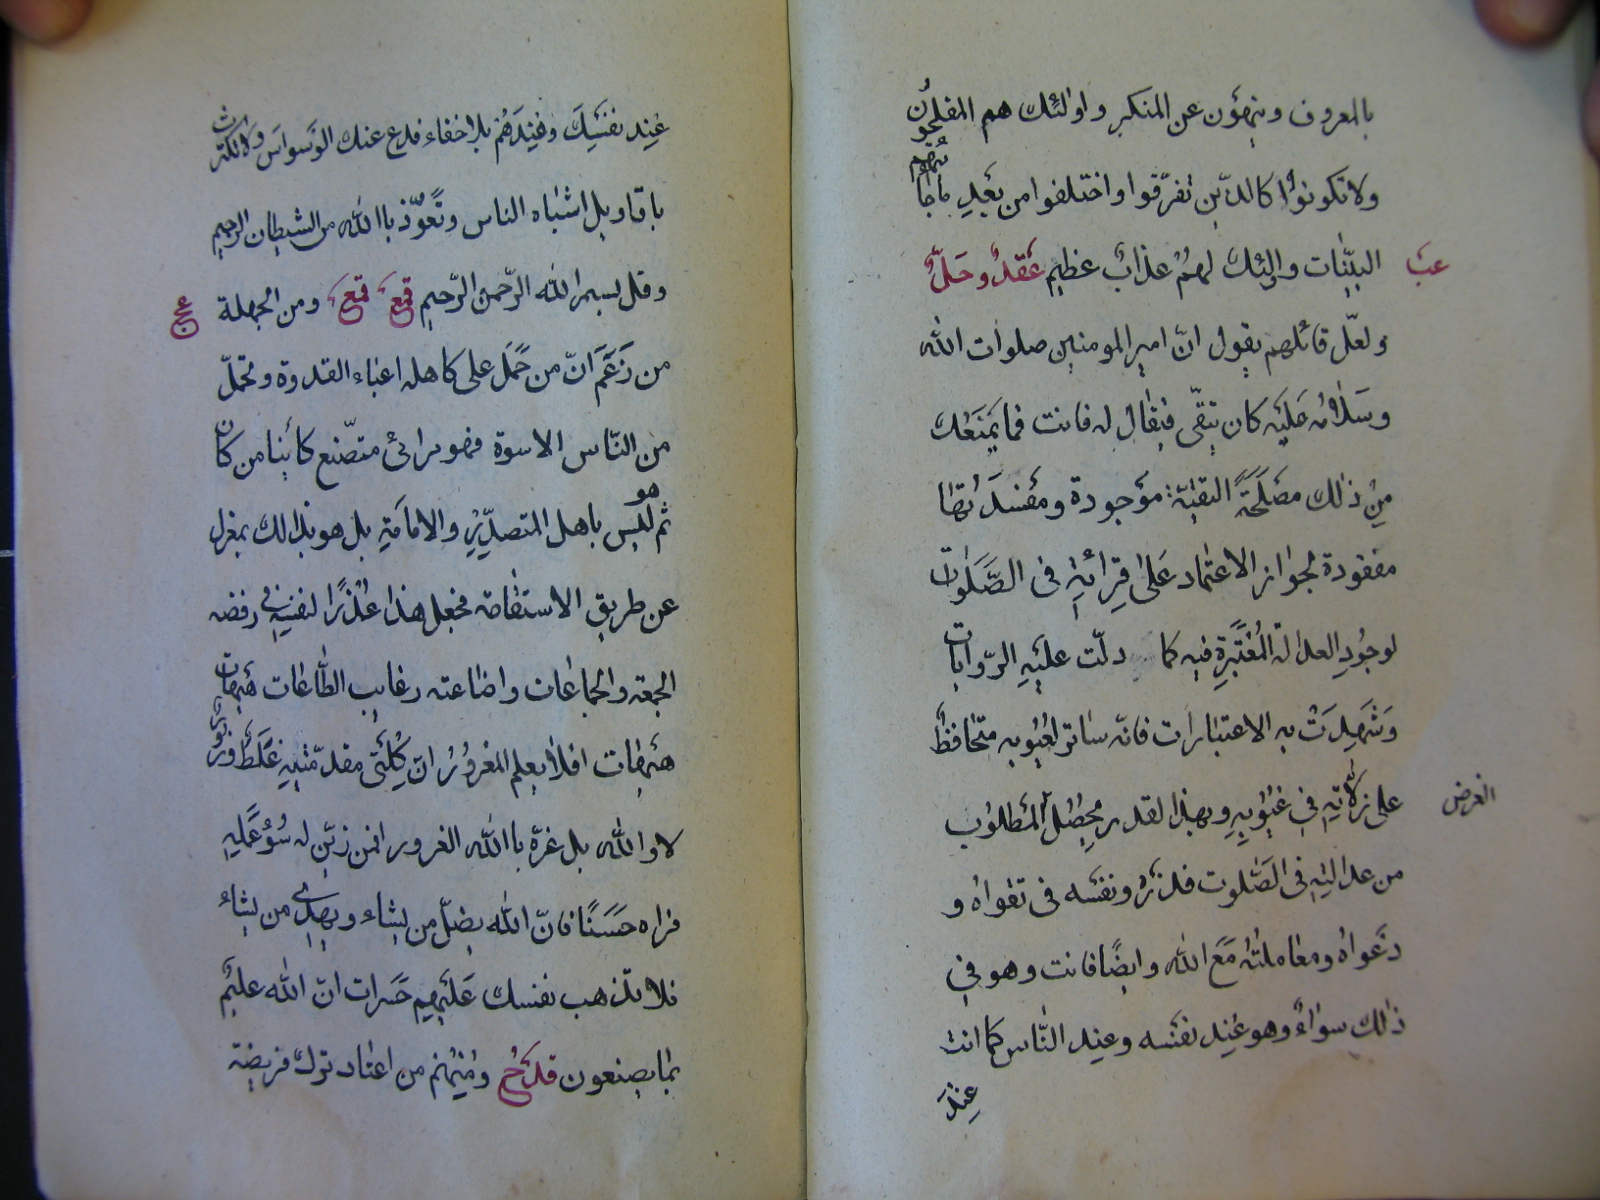 بالمعروف وينهون عن المنكر واولئك هم المفلحون
ولا تكونوا كالذين تفرقوا واختلفوا من بعد ما جائهم
البينات واولئك لهم عذاب عظيم عقد وحل
ولعل قائلهم يقول ان امير المومنين صلوات الله
وسلامه عليه كان يتقى فيقال له فانت فما يمنعك
من ذلك مصلحة التقية موجودة ومفسدتها
مفقودة لجواز الاعتماد على قرائته فى الصلوت
لوجود العدالة المعتبرة فيه كما دلت عليه الروايات
وشهدت به الاعتبارات فانه ساتر لعيوبه متحافظ
على زلاته فى غيوبه وبهذا لقدر يحصل المطلوب
الغرض
من عدالته فى الصلوت فلذره ونفسه فى تقواه و
دعواه ومعاملته مع الله وايضا فانت وهو فى
ذلك سواء وهو عند نفسه وعند الناس كما انت
عند
عند نفسك وعندهم بلا خفاء فدع عنك الوسواس ولا تكترث
باقاويل اشباه الناس وتعوذ باالله من الشيطان الرجيم
وقل بسم الله الرحمن الرحيم قمع قمع ومن الجهلة
من زعم ان من حمل على كاهله اعباء القدوة وتحمل
من الناس الاسوة فهو مرائى متصنع كائنا من كان
ثم هو ليس باهل المتصدر والامامة بل هو بذلك بمعزل
عن طريق الاستقامة فجعل هذا عذرا لنفسه فى رفضه
الجمعة والجماعات واضاعته رغايب الطاعات هيهات
هيهات افلا يعلم المغرور ان كلتى مقدمتيه غلط وزور
لا والله بل غره باالله الغرور افمن زين له سوء عمله
فراه حسنا فان الله يضل من يشاء ويهدى من يشاء
فلا تذهب نفسك عليهم حسرات ان الله عليم
بما يصنعون قدح ومنهم من اعتاد ترك فريضة